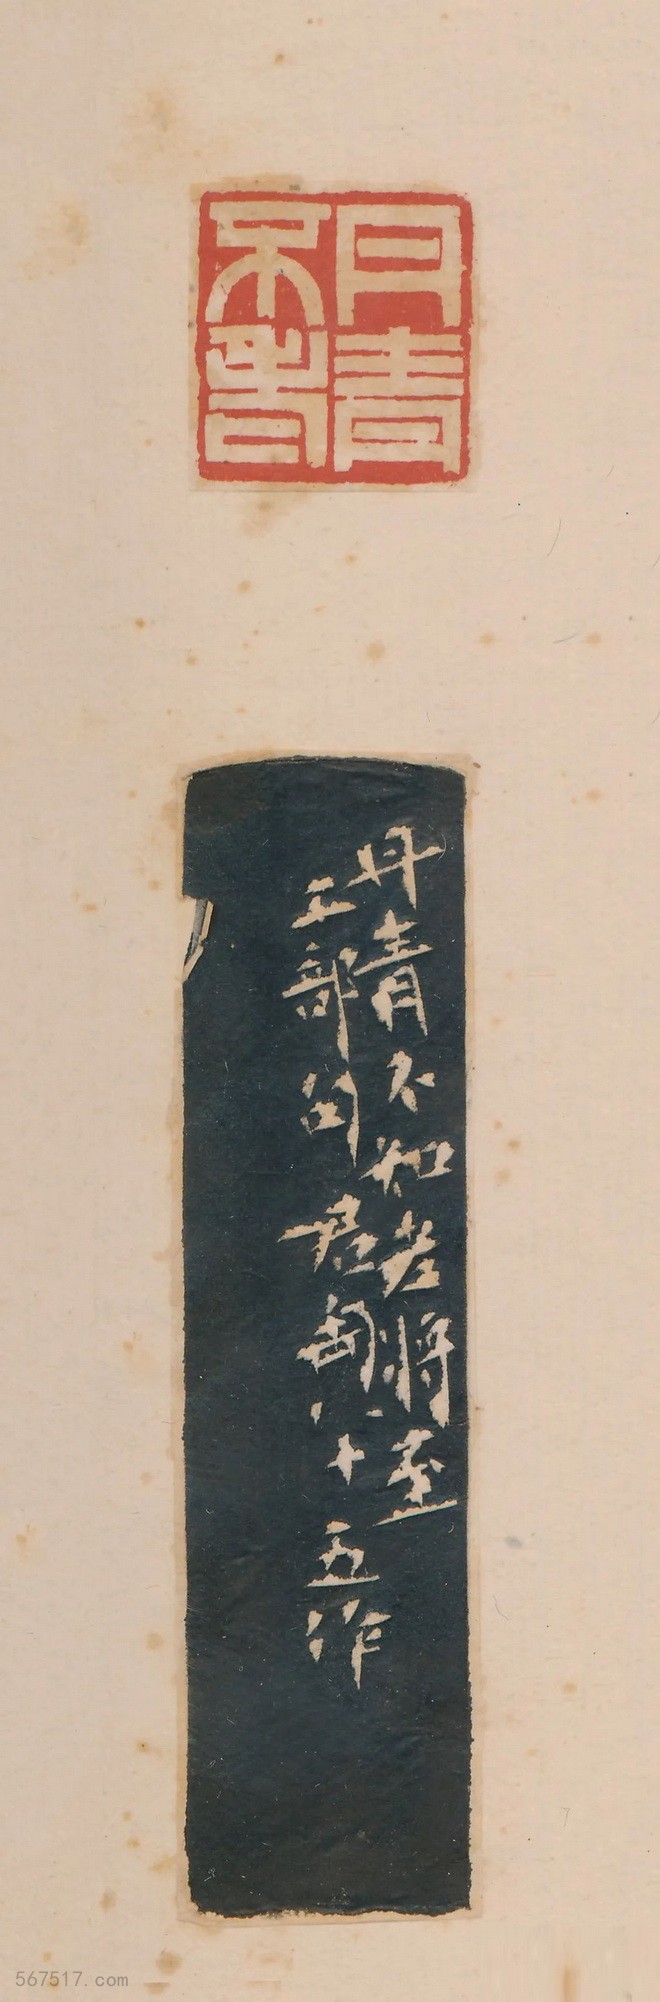 丹青
不老
丹青不知老將至
工部句君匋八十五作
567517.com